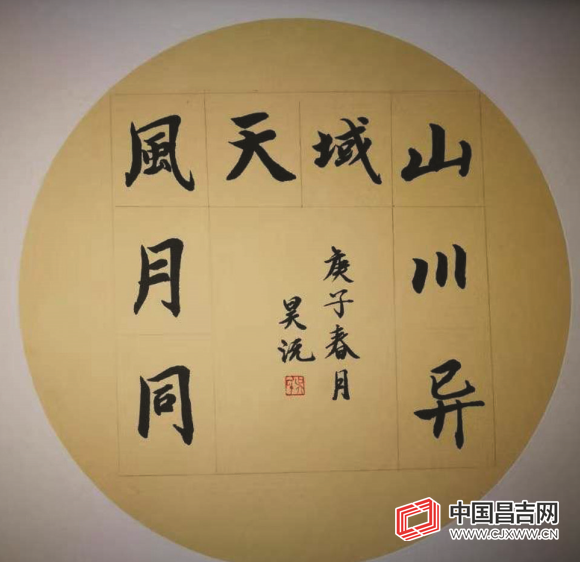 山川异
域
天
風月同
庚子春月
昊沅
中国昌吉网
WWW.CJXWW.CN